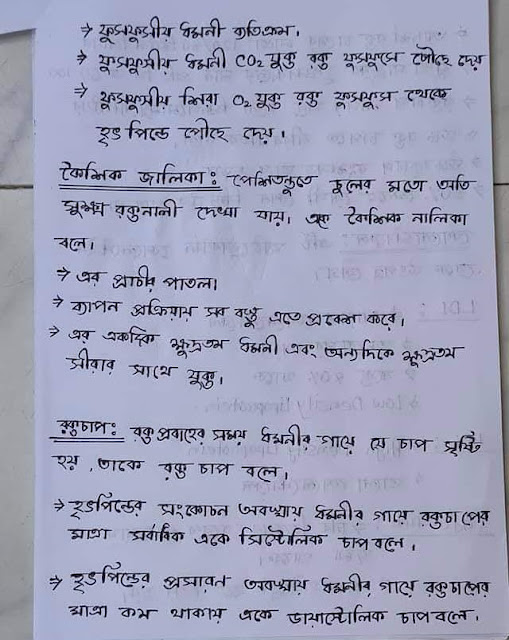 → ফুসফুসীয় ধমনী ব্যতিক্রম।
→ ফুসফুসীয় ধমনী CO₂ যুক্ত রক্ত ফুসফুসে পৌছে দেয়
→ ফুসফুসীয় শিরা O₂ যুক্ত রক্ত ফুসফুস থেকে
হৃৎপিন্ডে পৌছে দেয়।
কৈশিক জালিকা: পেশিতন্তুতে চুলের মতো অতি
সুক্ষ্ম রক্তনালী দেখা যায়। একে কৈশিক নালিকা
বলে।
→ এর প্রাচীর পাতলা।
→ ব্যাপন প্রক্রিয়ায় সব বস্তু এতে প্রবেশ করে।
→ এর একদিকে ক্ষুদ্রতম ধমনী এবং অন্যদিকে ক্ষুদ্রতম
সীরার সাথে যুক্ত।
রক্তচাপ: রক্তপ্রবাহের সময় ধমনীর গায়ে যে চাপ সৃষ্টি
হয়, তাকে রক্ত চাপ বলে।
→ হৃৎপিন্ডের সংকোচন অবস্থায় ধমনীর গায়ে রক্তচাপের
মাত্রা সর্বাধিক একে সিস্টোলিক চাপ বলে।
→ হৃৎপিন্ডের প্রসারন অবস্থায় ধমনীর গায়ে রক্তচাপের
মাত্রা কম থাকায় একে ডায়াস্টোলিক চাপ বলে।